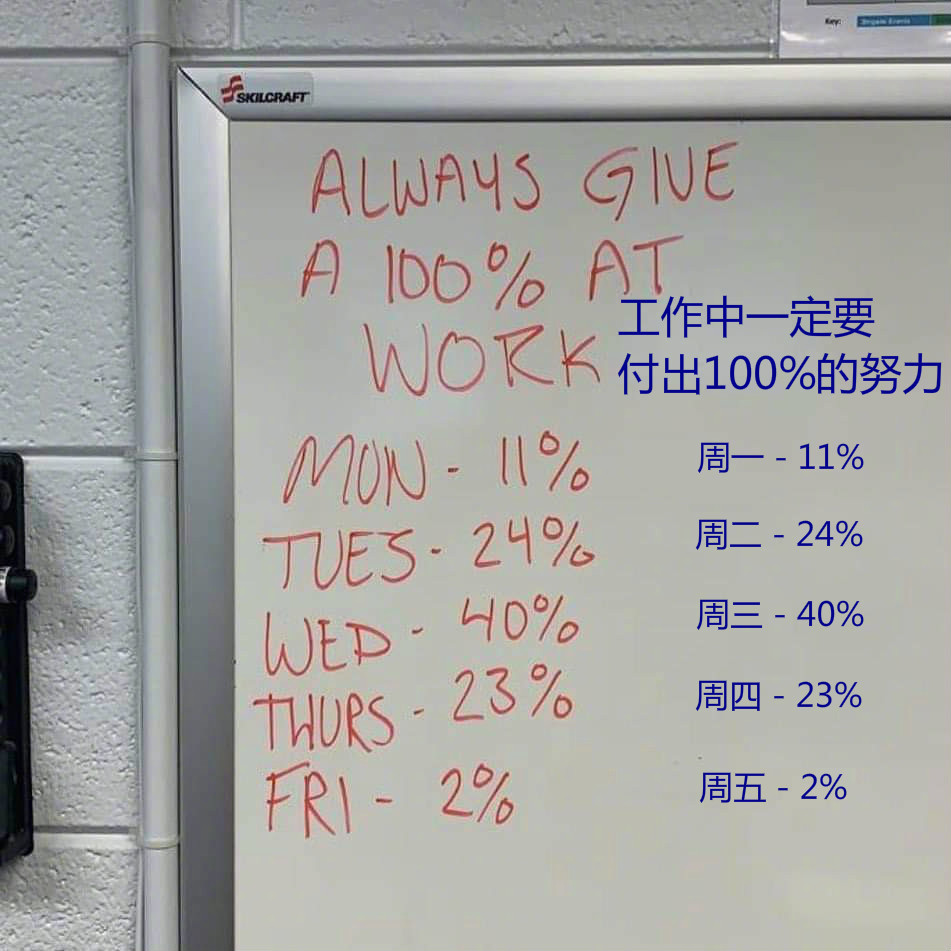 Key: Brigade Events
SKILCRAFT
ALWAYS GIVE
A 100% AT
WORK
工作中一定要
付出100%的努力
MON - 11%
周一 - 11%
TUES - 24%
周二 - 24%
WED - 40%
周三 - 40%
THURS - 23%
周四 - 23%
FRI - 2%
周五 - 2%